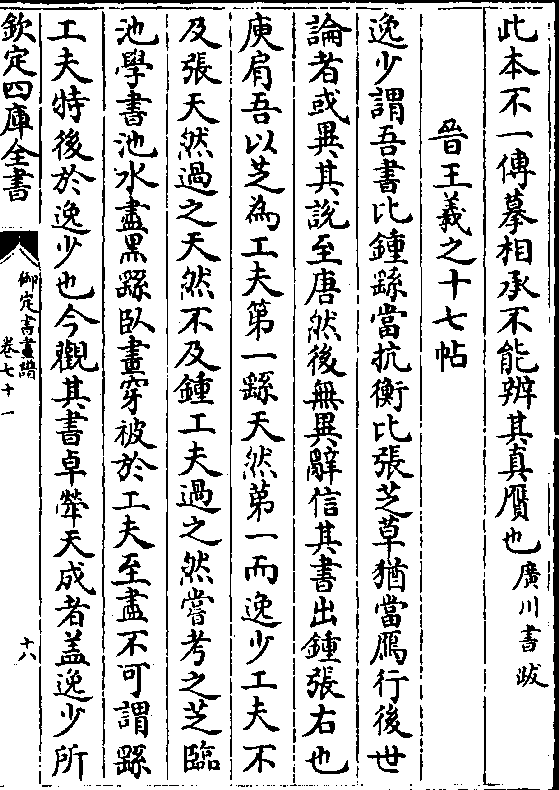 此本不一傳摹相承不能辨其真贋也廣川書跋
晉王羲之十七帖
逸少謂吾書比鍾繇當抗衡比張芝草猶當鴈行後世
論者或異其說至唐然後無異辭信其書出鍾張右也
庾肩吾以芝為工夫第一繇天然第一而逸少工夫不
及張天然過之天然不及鍾工夫過之然嘗考之芝臨
池學書池水盡黑繇臥畫穿被於工夫至盡不可謂繇
工夫特後於逸少也今觀其書卓犖天成者蓋逸少所
欽定四庫全書
御定書畫譜
卷七十一
十八